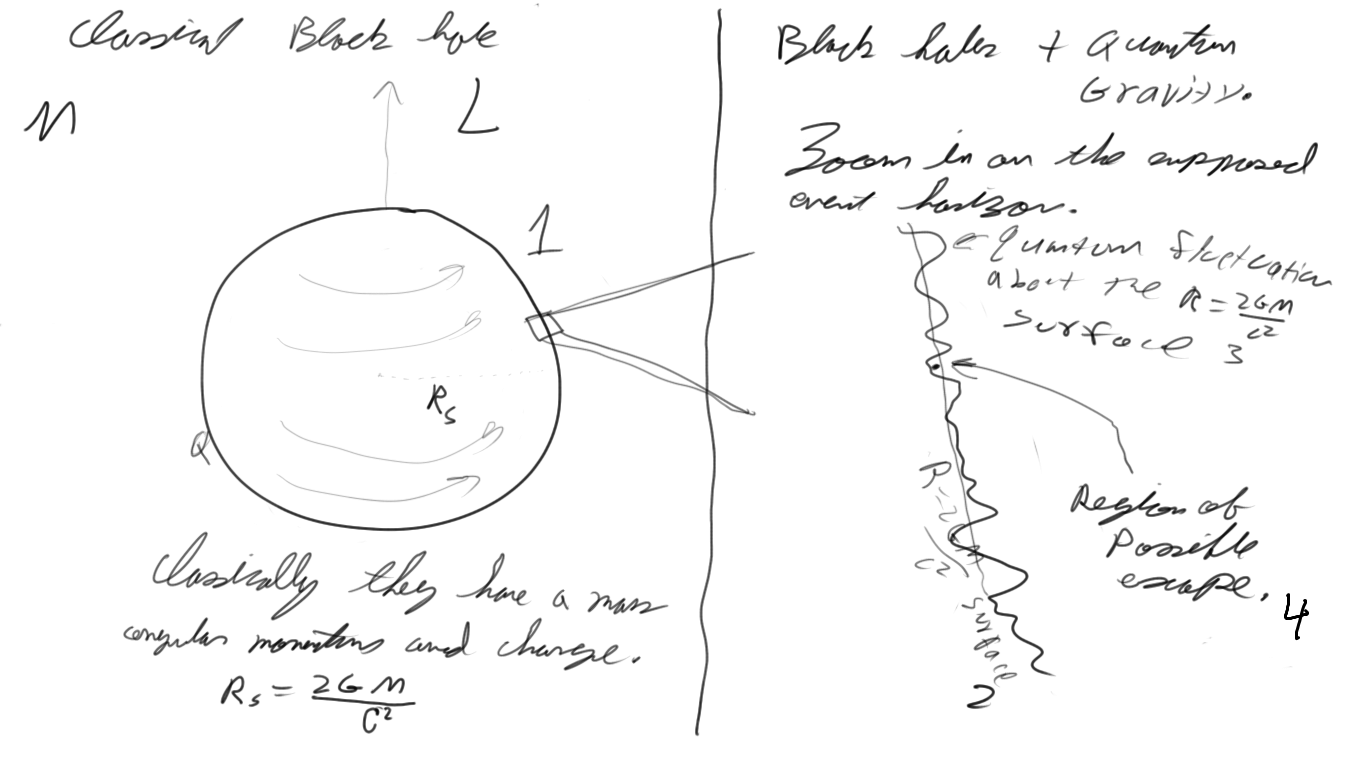 Classical Black hole
M
L
1
Rs
Q
Classically they have a mass
angular momentum and charge.
Rs = 2GM/C²
Black holes + Quantum
Gravity.
Zoom in on the supposed
event horizon.
Quantum fluctuation
about the R = 2GM/C²
surface 3
Region of
Possible
escape. 4
R = 2GM/C²
surface
2